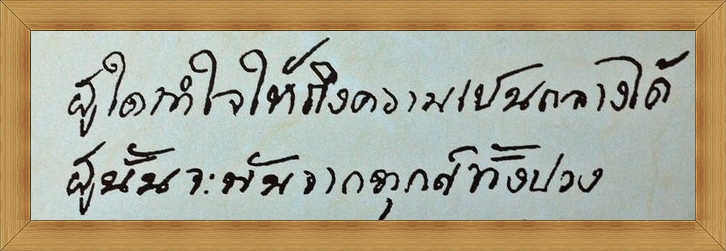 ผู้ใดทำใจให้ถึงความเป็นกลางได้
ผู้นั้นจะพ้นจากทุกข์ทั้งปวง